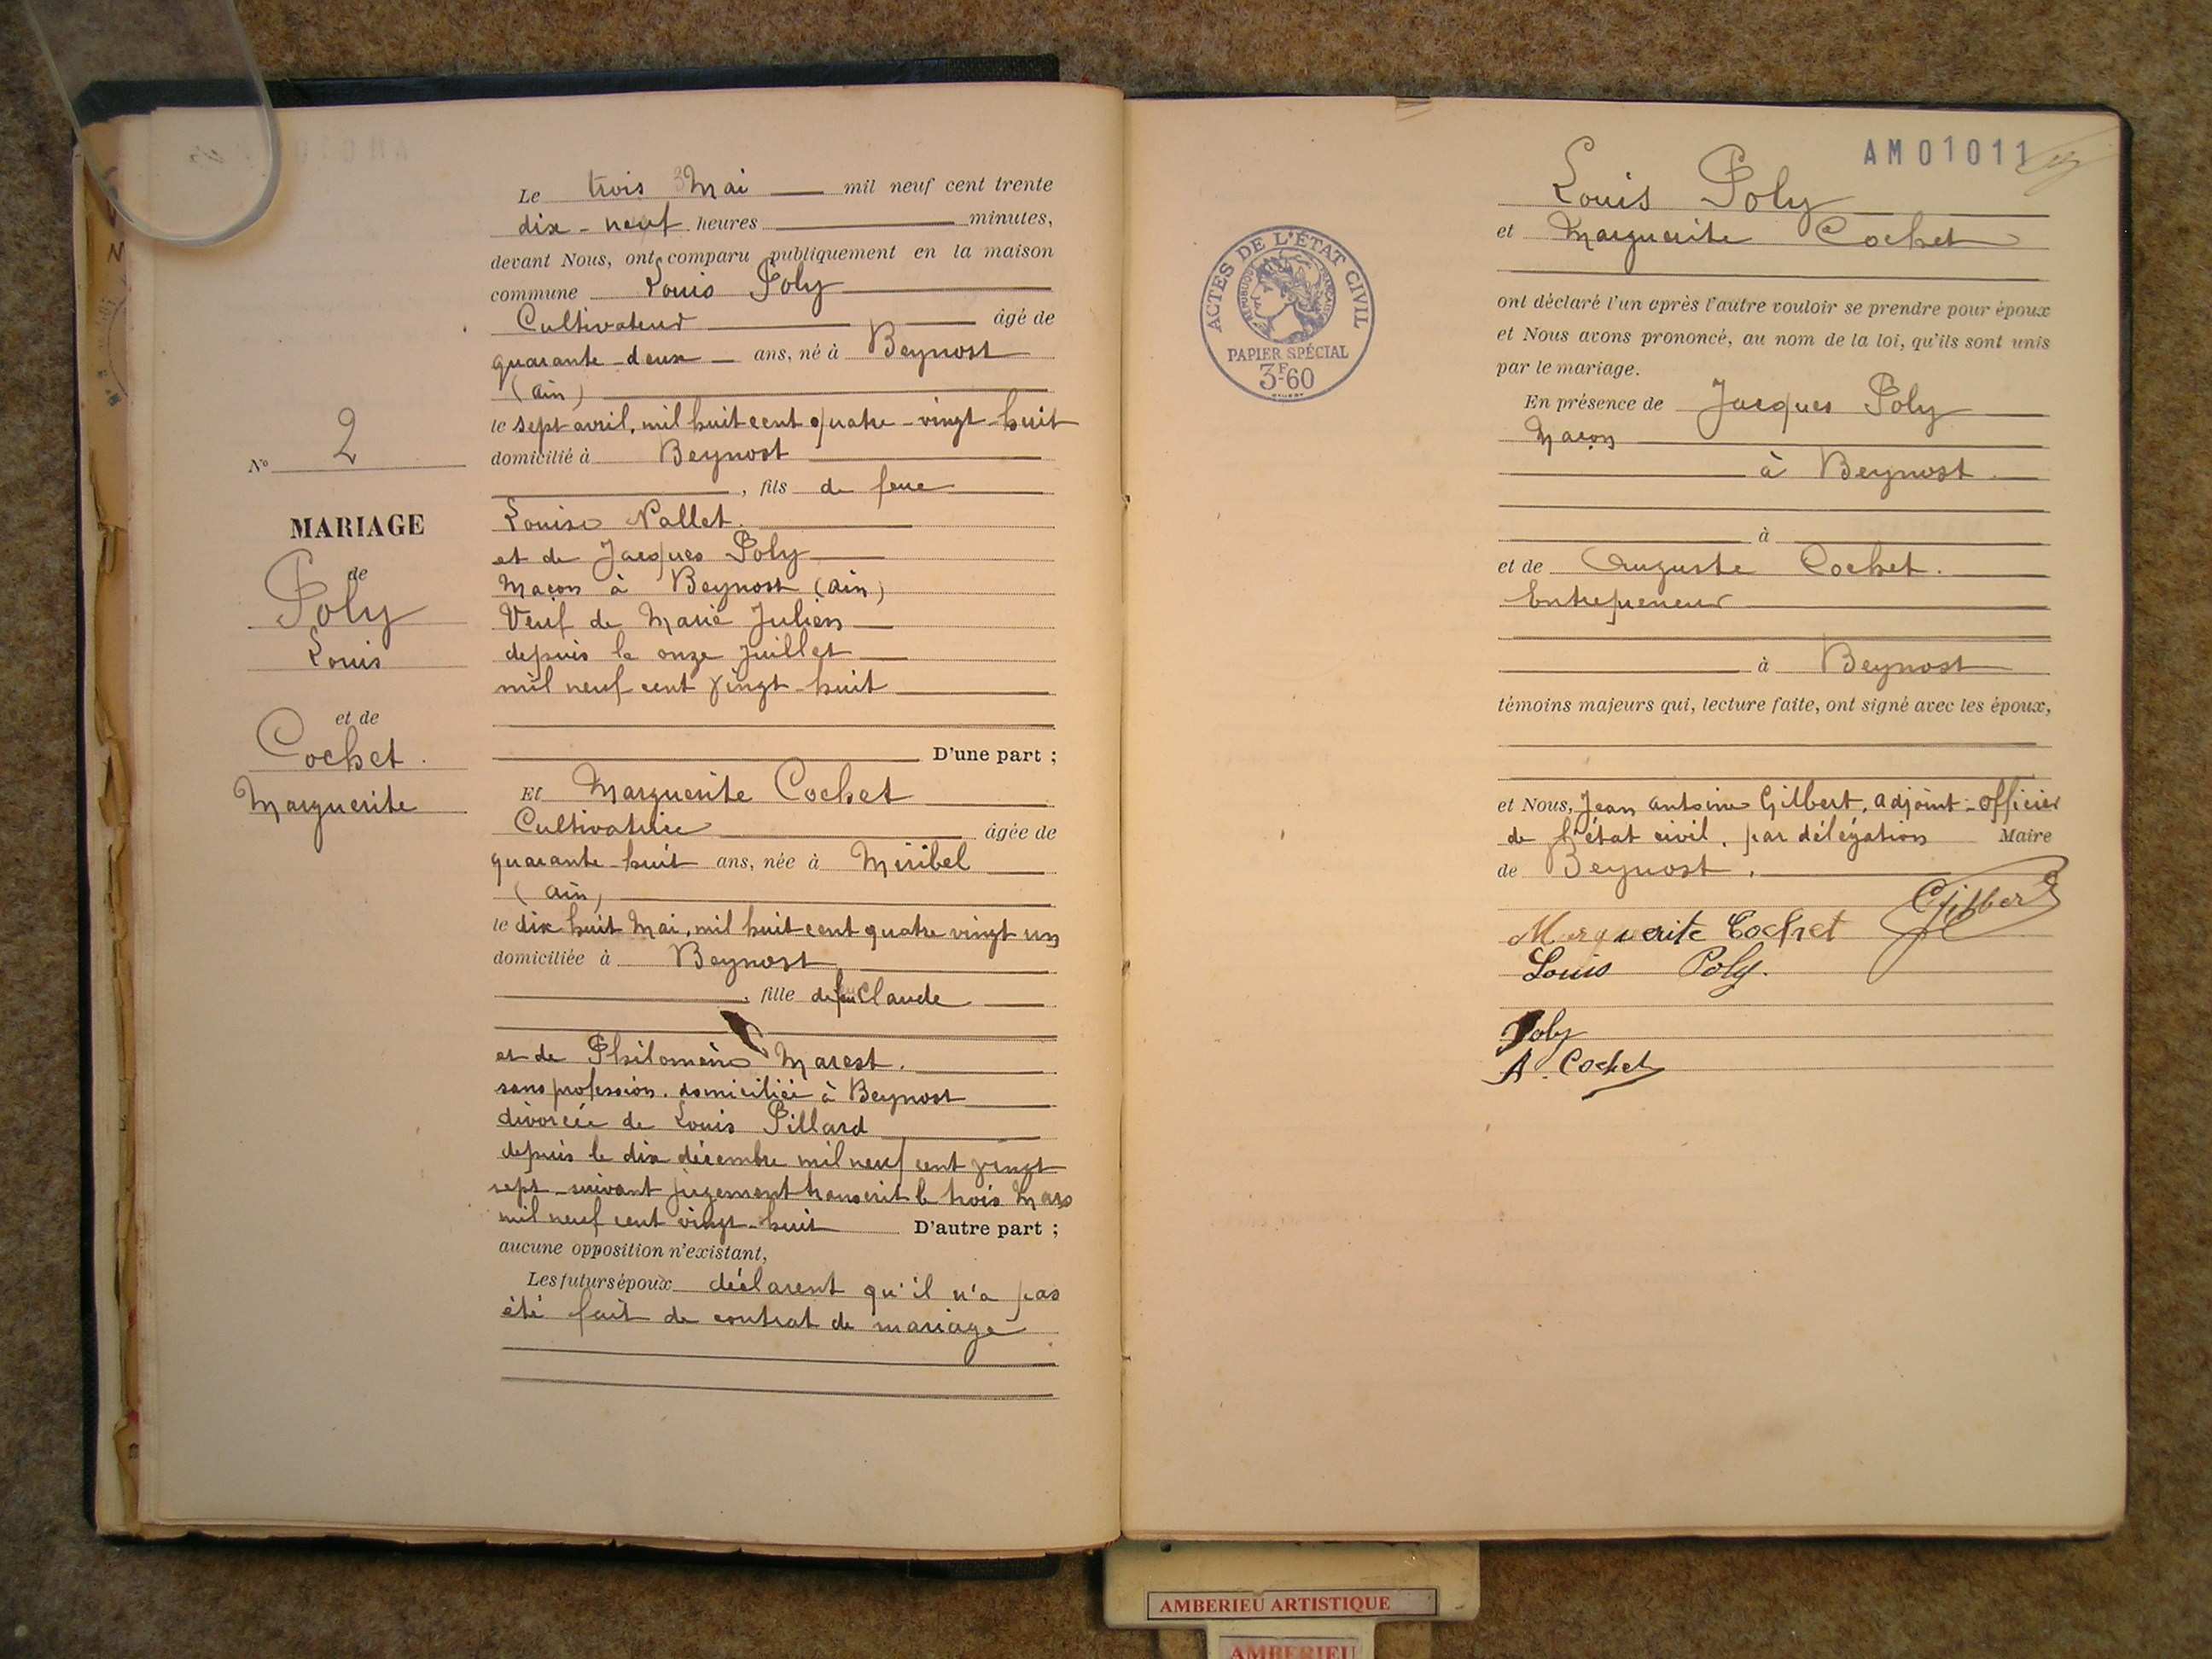 N° 2
MARIAGE
de
Poly
Louis
et de
Cochet.
Marguerite
Le trois Mai mil neuf cent trente
dix-neuf heures minutes,
devant Nous, ont comparu publiquement en la maison
commune Louis Poly
Cultivateur âgé de
quarante-deux ans, né à Beynost
(ain)
le sept avril, mil huit cent quatre-vingt-huit
domicilié à Beynost
, fils de feue
Louise Nallet.
et de Jacques Poly
Maçon à Beynost (ain)
Veuf de Marie Julien
depuis le onze Juillet
mil neuf cent vingt-huit
D'une part ;
Et Marguerite Cochet
Cultivatrice âgée de
quarante-huit ans, née à Miribel
(ain)
le dix huit Mai, mil huit cent quatre vingt un
domiciliée à Beynost
, fille de feu Claude
et de Philomène Marest.
sans profession. domiciliée à Beynost
divorcée de Louis Pillard
depuis le dix décembre mil neuf cent vingt
sept suivant jugement transcrit le trois Mars
mil neuf cent vingt-huit D'autre part ;
aucune opposition n'existant,
Les futurs époux déclarent qu'il n'a pas
été fait de contrat de mariage
AM01011
ACTES DE L'ÉTAT CIVIL
RÉPUBLIQUE FRANÇAISE
PAPIER SPÉCIAL
3F60
Louis Poly
et Marguerite Cochet
ont déclaré l'un après l'autre vouloir se prendre pour époux
et Nous avons prononcé, au nom de la loi, qu'ils sont unis
par le mariage.
En présence de Jacques Poly
Maçon
à Beynost.
à
et de Auguste Cochet.
Entrepreneur
à Beynost
témoins majeurs qui, lecture faite, ont signé avec les époux,
et Nous, Jean antoine Gilbert, adjoint-officier
de l'état civil, par délégation Maire
de Beynost.
Gilbert
Marguerite Cochet
Louis Poly.
Poly
A. Cochet
AMBERIEU ARTISTIQUE
AMBERIEU